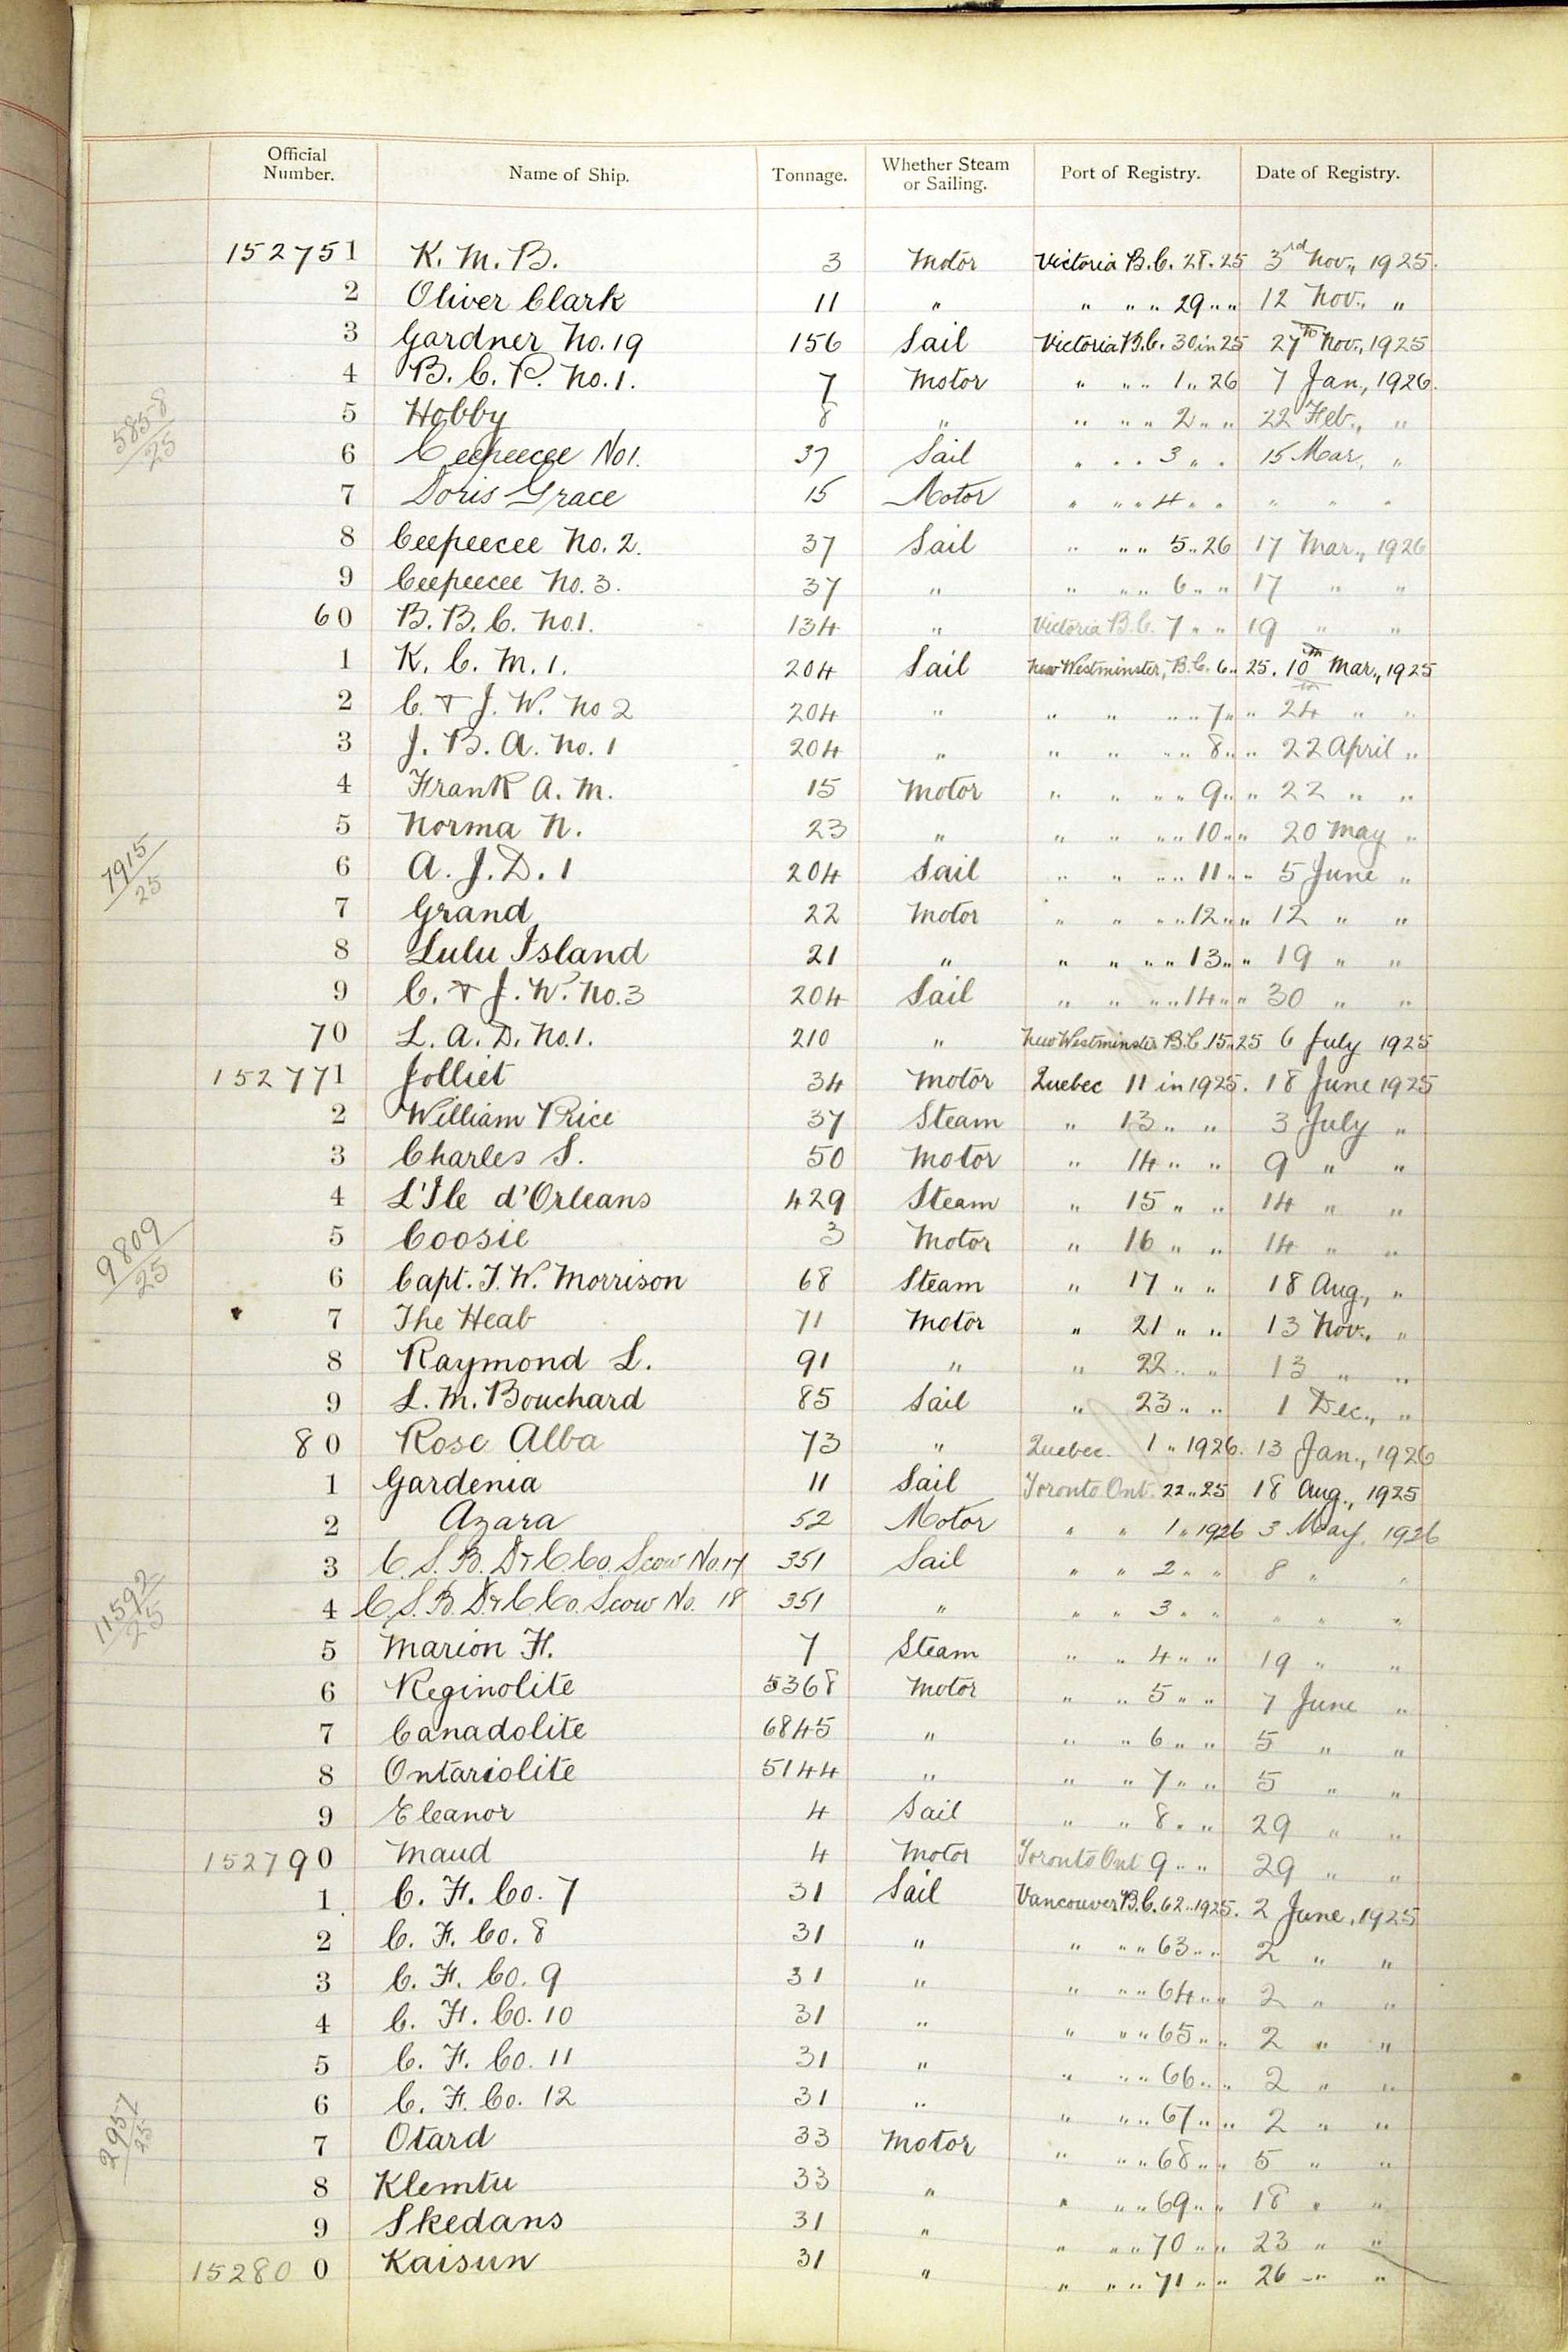 Official Number. Name of Ship. Tonnage. Whether Steam or Sailing. Port of Registry. Date of Registry.
152751 K. M. B. 3 Motor Victoria B.C. 28.25 3rd Nov., 1925.
2 Oliver Clark 11 " " " " 29 " " 12 Nov., "
3 Gardner No. 19 156 Sail Victoria B.C. 30 in 25 27th Nov., 1925
4 B. C. P. No. 1. 7 Motor " " " 1 " 26 7 Jan., 1926.
5 Hobby 8 " " " " 2 " " 22 Feb., "
5858/25
6 Ceepeecee No 1. 37 Sail " " " 3 " " 15 Mar, "
7 Doris Grace 15 Motor " " " 4 " " " " "
8 Ceepeecee No. 2. 37 Sail " " " 5 " 26 17 Mar., 1926
9 Ceepeecee No. 3. 37 " " " " 6 " " 17 " "
60 B. B. C. No. 1. 134 " Victoria B.C. 7 " " 19 " "
1 K. C. M. 1. 204 Sail New Westminster, B.C. 6 " 25. 10th Mar., 1925
2 C. & J. W. No 2 204 " " " " " 7 " " 24 " "
3 J. B. A. No. 1 204 " " " " " 8 " " 22 April "
4 Frank A. M. 15 Motor " " " " 9 " " 22 " "
5 Norma N. 23 " " " " " 10 " " 20 May "
7915/25
6 A. J. D. 1 204 Sail " " " " 11 " " 5 June "
7 Grand 22 Motor " " " " 12 " " 12 " "
8 Lulu Island 21 " " " " " 13 " " 19 " "
9 C. & J. W. No. 3 204 Sail " " " " 14 " " 30 " "
70 L. A. D. No. 1. 210 " New Westminster B.C. 15 " 25 6 July 1925
152771 Jolliet 34 Motor Quebec 11 in 1925. 18 June 1925
2 William Price 37 Steam " 13 " " 3 July "
3 Charles S. 50 Motor " 14 " " 9 " "
4 L'Ile d'Orleans 429 Steam " 15 " " 14 " "
5 Coosie 3 Motor " 16 " " 14 " "
9809/25
6 Capt. J. W. Morrison 68 Steam " 17 " " 18 Aug., "
7 The Heab 71 Motor " 21 " " 13 Nov., "
8 Raymond L. 91 " " 22 " " 13 " "
9 L. M. Bouchard 85 Sail " 23 " " 1 Dec., "
80 Rose Alba 73 " Quebec. 1 " 1926. 13 Jan., 1926
1 Gardenia 11 Sail Toronto Ont. 22 " 25 18 Aug., 1925
2 Azara 52 Motor " " 1 " 1926 3 May, 1926
3 C. S. B. D & C. Co. Scow No. 17 351 Sail " " 2 " " 8 " "
11592/25
4 C. S. B. D. & C. Co. Scow No. 18 351 " " " 3 " " " " "
5 Marion H. 7 Steam " " 4 " " 19 " "
6 Reginolite 5368 Motor " " 5 " " 7 June "
7 Canadolite 6845 " " " 6 " " 5 " "
8 Ontariolite 5144 " " " 7 " " 5 " "
9 Eleanor 4 Sail " " 8 " " 29 " "
152790 Maud 4 Motor Toronto Ont 9 " " 29 " "
1. C. F. Co. 7 31 Sail Vancouver B.C. 62 " 1925. 2 June, 1925
2 C. F. Co. 8 31 " " " " 63 " " 2 " "
3 C. F. Co. 9 31 " " " " 64 " " 2 " "
4 C. F. Co. 10 31 " " " " 65 " " 2 " "
5 C. F. Co. 11 31 " " " " 66 " " 2 " "
6 C. F. Co. 12 31 " " " " 67 " " 2 " "
2957/25
7 Otard 33 Motor " " " 68 " " 5 " "
8 Klemtu 33 " " " " 69 " " 18 " "
9 Skedans 31 " " " " 70 " " 23 " "
152800 Kaisun 31 " " " " 71 " " 26 " "